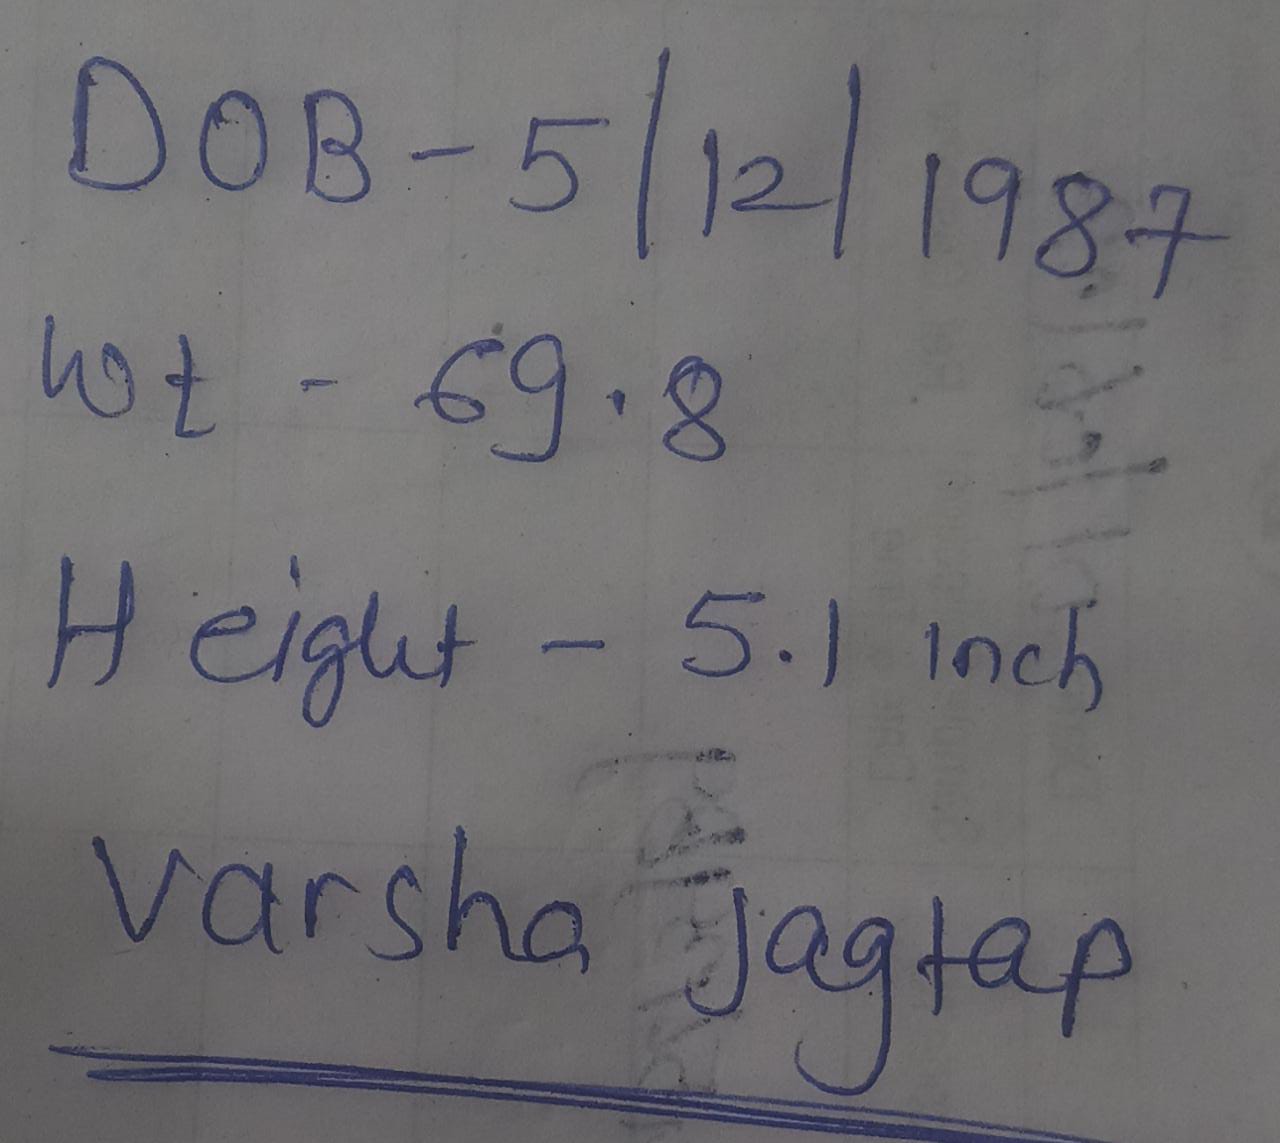 DOB - 5/12/1987
Wt - 69.8
Height - 5.1 inch
Varsha Jagtap